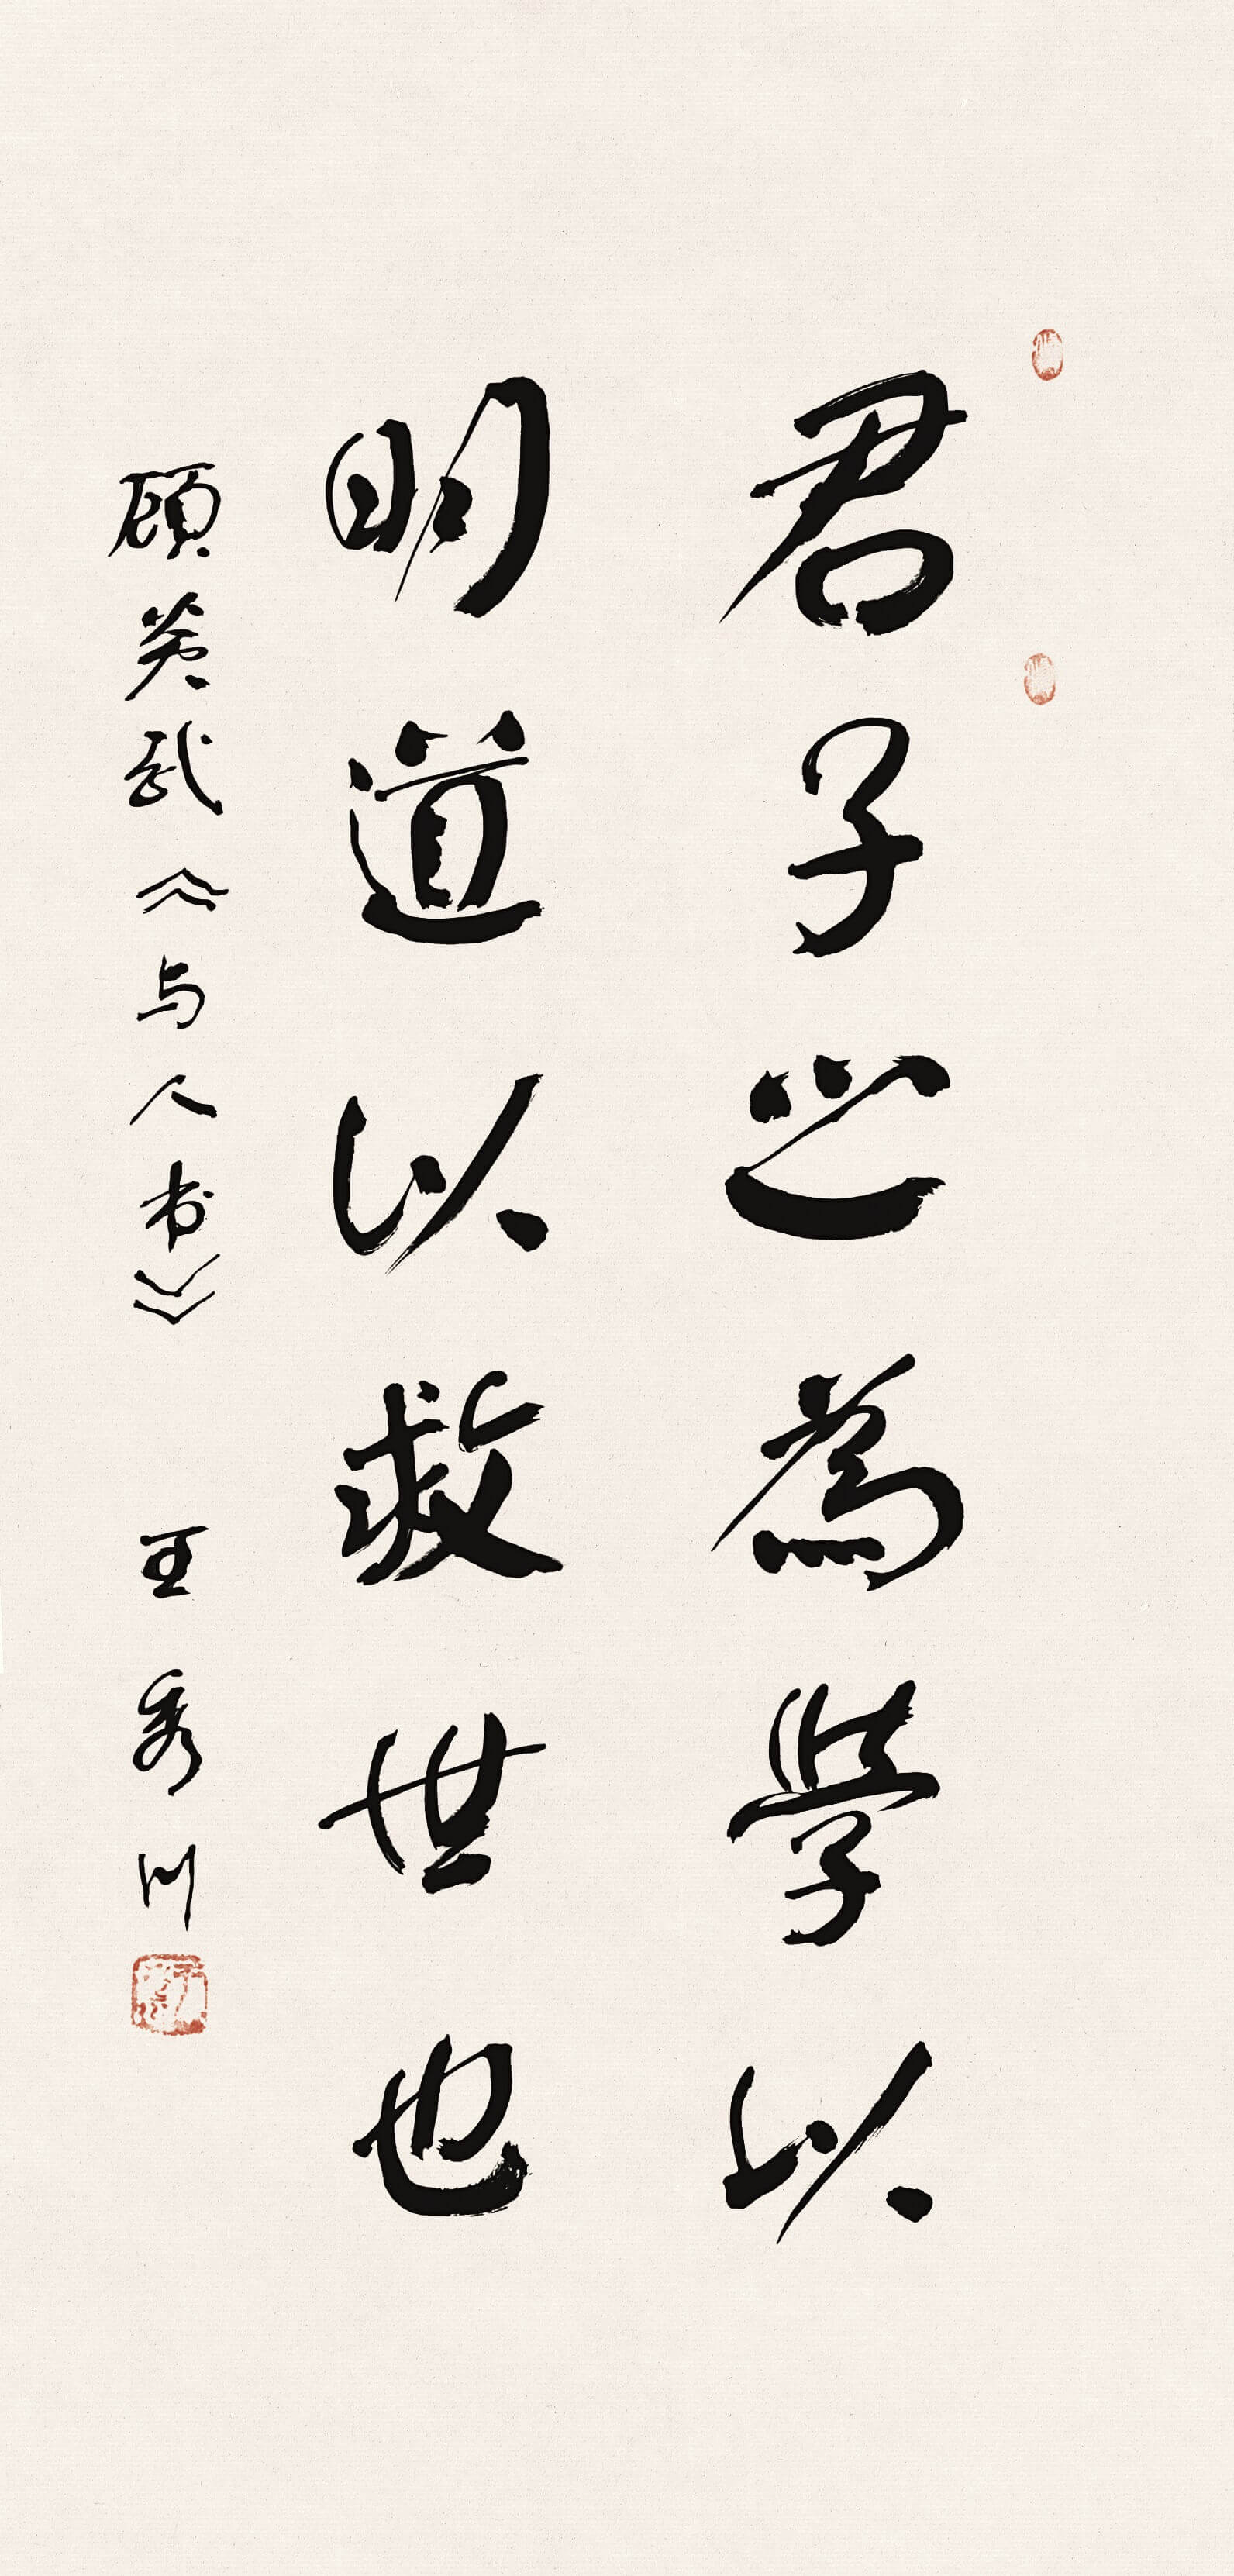 君子之為學以
明道以救世也
顾炎武《与人书》 王秀川